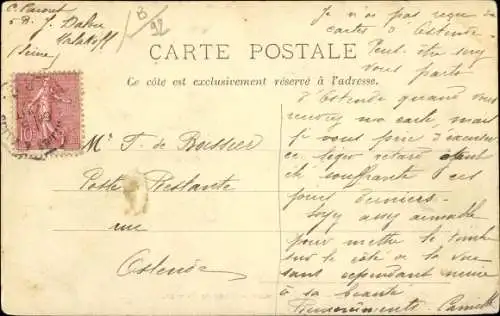 C. Pacoret
5 B. J. Dalou
Malakoff
(Seine)
B
92
CARTE POSTALE
Ce côté est exclusivement réservé à l'adresse.
Mr T. de Bossier
Poste Restante
rue
Ostende
Je n'ai pas reçu de
cartes d'Ostende
Peut être
vous parti
d'Ostende quand vous
ma carte, mais
si vous prie d'excuser
ce léger retard étant
été souffrante ces
jours derniers.
Soyez assez aimable
pour mettre le timbre
sur le côté de la vue
sans cependant nuire
à sa beauté
Camille